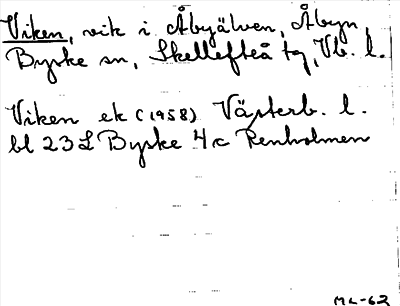 Viken, vik i Åbyälven, Åbyn,
Byske sn, Skellefteå tg, Vb. l.
Viken ek (1958) Västerb. l.
bl 23 L Byske 4c Renholmen
ML-62